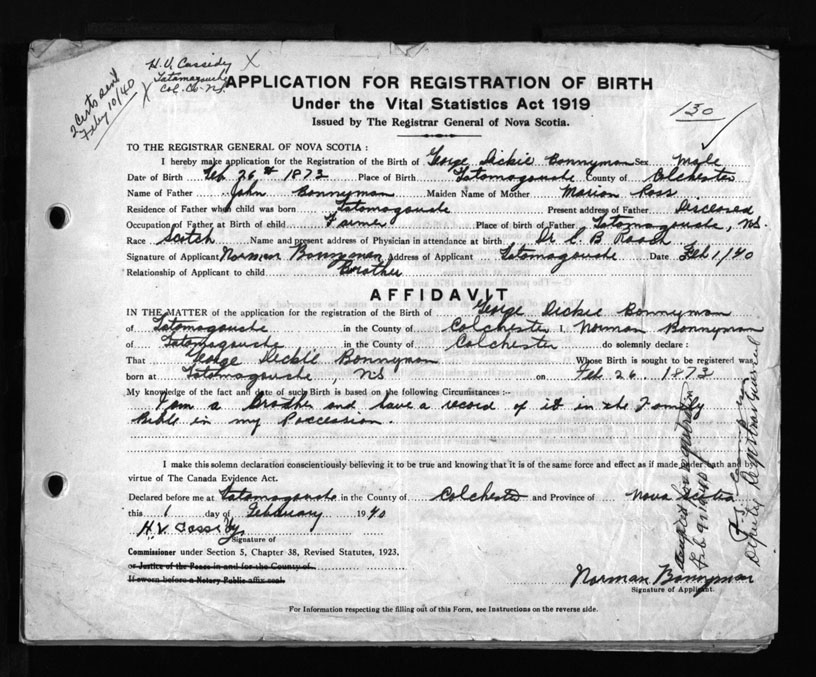 H. V. Cassidy X
Tatamagouche
X Col. Co. N.S.
2 Certs sent
Feby 10/40
APPLICATION FOR REGISTRATION OF BIRTH
Under the Vital Statistics Act 1919
Issued by The Registrar General of Nova Scotia.
130
TO THE REGISTRAR GENERAL OF NOVA SCOTIA :
I hereby make application for the Registration of the Birth of George Dickie Bonnyman Sex Male
Date of Birth Feb 26th 1873 Place of Birth Tatamagouche County of Colchester
Name of Father John Bonnyman Maiden Name of Mother Marion Ross
Residence of Father when child was born Tatamagouche Present address of Father Diseased
Occupation of Father at Birth of child Farmer Place of birth of Father Tatamagouche, NS.
Race Scotch Name and present address of Physician in attendance at birth Dr C. B. Roach
Signature of Applicant Norman Bonnyman Address of Applicant Tatamagouche Date Feb 1/40
Relationship of Applicant to child Brother
AFFIDAVIT
IN THE MATTER of the application for the registration of the Birth of George Dickie Bonnyman
of Tatamagouche in the County of Colchester I, Norman Bonnyman
of Tatamagouche in the County of Colchester do solemnly declare :
That George Dickie Bonnyman Whose Birth is sought to be registered was
born at Tatamagouche, NS on Feb 26 1873
My knowledge of the fact and date of such Birth is based on the following Circumstances :-
I am a Brother and have a record of it in the Family
Bible in my Poccession.
I make this solemn declaration conscientiously believing it to be true and knowing that it is of the same force and effect as if made under oath and by
virtue of The Canada Evidence Act.
Declared before me at Tatamagouche in the County of Colchester and Province of Nova Scotia
this 1 day of February 1940
H.V. Cassidy
Signature of
Commissioner under Section 5, Chapter 38, Revised Statutes, 1923,
or Justice of the Peace in and for the County of
If sworn before a Notary Public affix seal.
Norman Bonnyman
Signature of Applicant.
Feb 9 1940
Deputy Registrar General
For Information respecting the filling out of this Form, see Instructions on the reverse side.